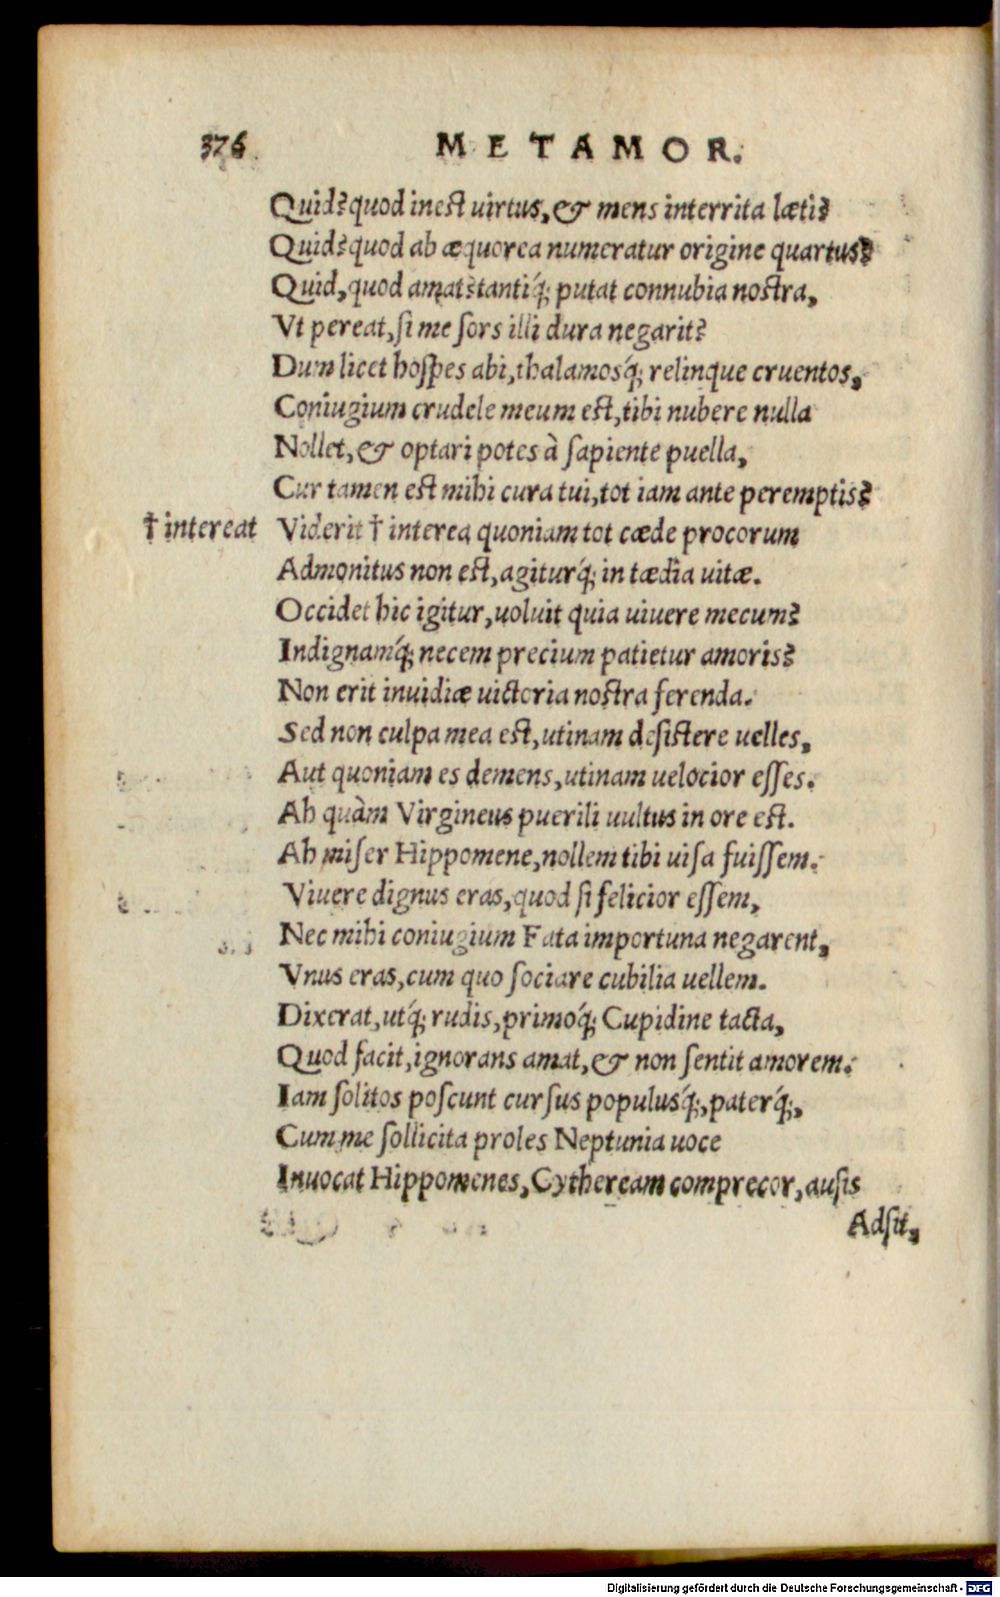 376
METAMOR.
Quid? quod inest uirtus, & mens interrita læti?
Quid? quod ab æquorea numeratur origine quartus?
Quid, quod amat? tantiq́; putat connubia nostra,
Vt pereat, si me sors illi dura negarit?
Dum licet hospes abi, thalamosq́; relinque cruentos,
Coniugium crudele meum est, tibi nubere nulla
Nollet, & optari potes à sapiente puella,
Cur tamen est mihi cura tui, tot iam ante peremptis?
† intereat Viderit † interea quoniam tot cæde procorum
Admonitus non est, agiturq́; in tædia uitæ.
Occidet hic igitur, uoluit quia uiuere mecum?
Indignamq́; necem precium patietur amoris?
Non erit inuidiæ uictoria nostra ferenda.
Sed non culpa mea est, utinam desistere uelles,
Aut quoniam es demens, utinam uelocior esses.
Ah quàm Virgineus puerili uultus in ore est.
Ah miser Hippomene, nollem tibi uisa fuissem.
Viuere dignus eras, quod si felicior essem,
Nec mihi coniugium Fata importuna negarent,
Vnus eras, cum quo sociare cubilia uellem.
Dixerat, utq́; rudis, primoq́; Cupidine tacta,
Quod facit, ignorans amat, & non sentit amorem.
Iam solitos poscunt cursus populusq́;, paterq́;,
Cum me sollicita proles Neptunia uoce
Inuocat Hippomenes, Cytheream comprecor, ausis
Adsit,
Digitalisierung gefördert durch die Deutsche Forschungsgemeinschaft - DFG